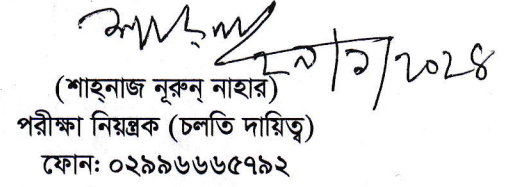 ২৯/১/২০২৪
(শাহ্‌নাজ নূরুন্‌ নাহার)
পরীক্ষা নিয়ন্ত্রক (চলতি দায়িত্ব)
ফোন: ০২৯৯৬৬৬৫৭৯২